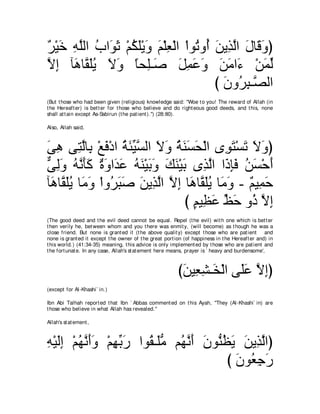 ﴿وَقَالَ الَّذِينَ أُوتُواْ الْعِلْمَ وَيْلَكُمْ ثَوَابُ اللَّهِ خَيْرٌ
لِّمَنْ ءَامَنَ وَعَمِلَ صَـلِحاً وَلاَ يُلَقَّاهَآ إِلاَّ
الصَّـبِرُونَ ﴾
(But those who had been given (religious) knowledge said: "Woe to you! The reward of Allah (in the Hereafter) is better for those who believe and do righteous good deeds, and this, none shall attain except As-Sabirun (the patient).'') (28:80).
Also, Allah said,
﴿وَلاَ تَسْتَوِى الْحَسَنَةُ وَلاَ السَّيِّئَةُ ادْفَعْ بِالَّتِى هِىَ
أَحْسَنُ فَإِذَا الَّذِى بَيْنَكَ وَبَيْنَهُ عَدَاوَةٌ كَأَنَّهُ وَلِىٌّ
حَمِيمٌ - وَمَا يُلَقَّاهَا إِلاَّ الَّذِينَ صَبَرُواْ وَمَا يُلَقَّاهَآ
إِلاَّ ذُو حَظِّ عَظِيمٍ ﴾
(The good deed and the evil deed cannot be equal. Repel (the evil) with one which is better then verily he, between whom and you there was enmity, (will become) as though he was a close friend. But none is granted it (the above quality) except those who are patient and none is granted it except the owner of the great portion (of happiness in the Hereafter and) in this world.) (41:34-35) meaning, this advice is only implemented by those who are patient and the fortunate. In any case, Allah's statement here means, prayer is `heavy and burdensome',
﴿إِلاَّ عَلَى الْخَـشِعِينَ﴾
(except for Al-Khashi`in.)
Ibn Abi Talhah reported that Ibn `Abbas commented on this Ayah, "They (Al-Khashi`in) are those who believe in what Allah has revealed.''
Allah's statement,
﴿الَّذِينَ يَظُنُّونَ أَنَّهُم مُّلَـقُوا رَبِّهِمْ وَأَنَّهُمْ إِلَيْهِ
رَجِعُونَ ﴾